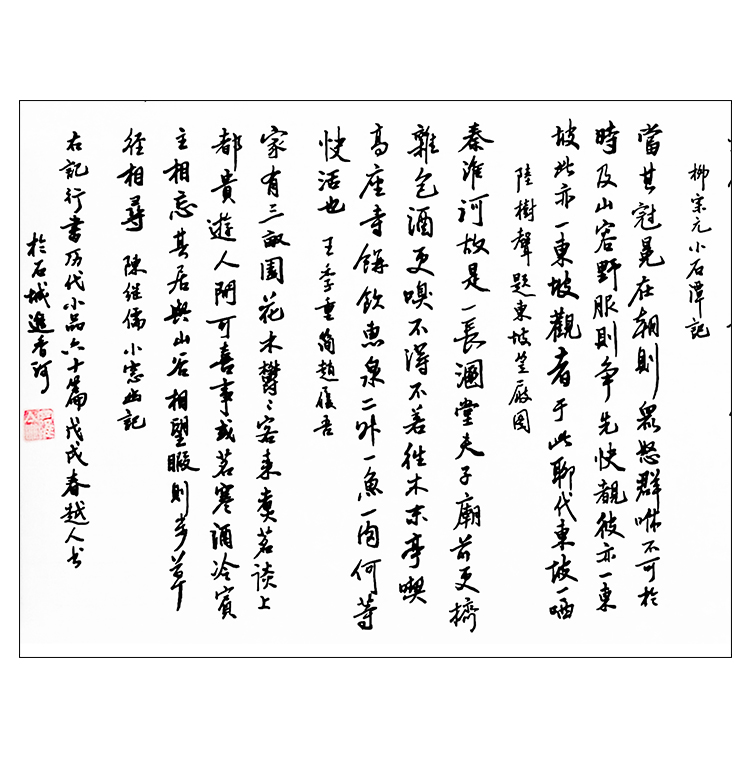 柳宗元小石潭記
當其冠冕在朝則衆怒群咻不可於
時及山容野服則爭先快覩彼亦一東
坡此亦一東坡觀者于此聊代東坡一哂
陸樹聲題東坡笠屐圖
秦淮河故是一長溷堂夫子廟前更擠
雜包酒更嗅不得不若往木末亭喫
高座寺餅飲惠泉二升一魚一肉何等
快活也 王季重簡趙履吾
家有三畝園花木鬱〻客來煑茗談上
都貴遊人間可喜事或茗寒酒冷賓
主相忘其居與山谷相望暇則步草
徑相尋 陳繼儒小窗幽記
右記行書历代小品六十篇戊戌春越人书
於石城逸香河